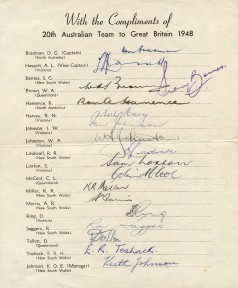 With the Compliments of
20th Australian Team to Great Britain 1948
Bradman, D. G. (Captain)
(South Australia)
Hassett, A. L. (Vice Captain)
(Victoria)
A. L. Hassett
Barnes, S. G.
(New South Wales)
Barnes
Brown, W. A.
(Queensland)
Hamence, R.
(South Australia)
Ron A. Hamence
Harvey, R. N.
(Victoria)
Johnson, I. W.
(Victoria)
Johnston, W. A.
(Victoria)
Lindwall, R. R.
(New South Wales)
Loxton, S.
(Victoria)
Sam Loxton
McCool, C. L.
(Queensland)
Colin McCool
Miller, K. R.
(New South Wales)
K R Miller
Morris, A. R.
(New South Wales)
Ring, D.
(Victoria)
D Ring
Saggers, R.
(New South Wales)
Saggers
Tallon, D.
(Queensland)
D Tallon
Toshack, E. R. H.
(New South Wales)
E. R. Toshack
Johnson, K. O. E. (Manager)
(New South Wales)
Keith Johnson